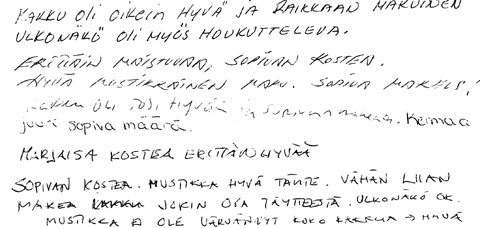 KAKKU OLI OIKEIN HYVÄ JA RAIKKAAN MAKUINEN
ULKONÄKÖ OLI MYÖS HOUKUTTELEVA.
ERITTÄIN MAISTUVAA, SOPIVAN KOSTEA.
HYVÄ MUSTIKKAINEN MAKU. SOPIVA MAKEUS.
Kakku oli tosi hyvää ja sopivan makeaa. Kermaa
juuri sopiva määrä.
MARJAISA KOSTEA ERITTÄIN HYVÄÄ
SOPIVAN KOSTEA. MUSTIKKA HYVÄ TÄYTE. VÄHÄN LIIAN
MAKEA JOKIN OSA TÄYTTEESTÄ. ULKONÄKÖ OK.
MUSTIKKA EI OLE VÄRJÄNNYT KOKO KAKKUA → HYVÄ